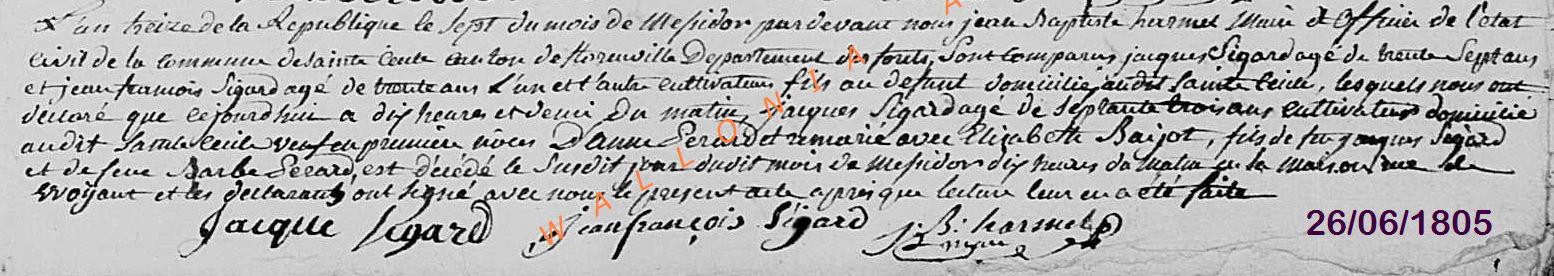 L'an treize de la Republique le Sept du mois de Messidor pardevant nous jean Baptiste harmel Maire et Officier de l'etat
civil de la commune de Sainte Cecile canton de florenville Departement des forets, Sont comparus jacques Sigard agé de trente Sept ans
et jean francois Sigard agé de trente ans L'un et l'autre cultivateurs fils au defunt domicilié audit Sainte Cecile, lesquels nous ont
declaré que cejourdhui a dix heures et demi du matin, jacques Sigard agé de Septante trois ans cultivateur domicilié
audit Sainte Cecile veuf en premiere nôces D'anne Gerard et remarié avec Elizabeth Baijot, fils de feu jacques Sigard
et de feue Barbe Gerard, est décédé le Susdit jour dudit mois de Messidor dix heures du matin en la maison, rue de
et les declarants ont signé avec nous le present acte apres que lecture leur en a été faite
Jacque Sigard Jean françois Sigard J: B: harmel
maire
26/06/1805
WALLONIA